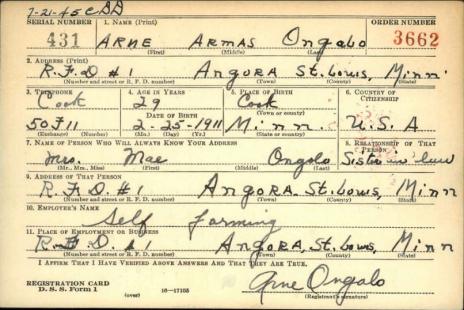 7-21-45 CDD
SERIAL NUMBER 1. NAME (Print) ORDER NUMBER
431 ARNE ARMAS Ongalo 3662
(First) (Middle) (Last)
2. ADDRESS (Print)
R.F.D #1 ANGORA St. Louis, Minn
(Number and street or R. F. D. number) (Town) (County) (State)
3. TELEPHONE 4. AGE IN YEARS 5. PLACE OF BIRTH 6. COUNTRY OF CITIZENSHIP
Cook 29 Cook
DATE OF BIRTH (Town or county)
50F11 2-25-1911 Minn. U.S.A
(Exchange) (Number) (Mo.) (Day) (Yr.) (State or country)
7. NAME OF PERSON WHO WILL ALWAYS KNOW YOUR ADDRESS 8. RELATIONSHIP OF THAT PERSON
Mrs. Mae Ongalo Sister in law
(Mr., Mrs., Miss) (First) (Middle) (Last)
9. ADDRESS OF THAT PERSON
R.F.D. #1 ANGORA. St. Louis, Minn
(Number and street or R. F. D. number) (Town) (County) (State)
10. EMPLOYER'S NAME
Self farming
11. PLACE OF EMPLOYMENT OR BUSINESS
R.F.D. #1 ANGORA, St. Louis, Minn
(Number and street or R. F. D. number) (Town) (County) (State)
I AFFIRM THAT I HAVE VERIFIED ABOVE ANSWERS AND THAT THEY ARE TRUE.
Arne Ongalo
REGISTRATION CARD
D. S. S. Form 1 (over) 16—17105 (Registrant's signature)